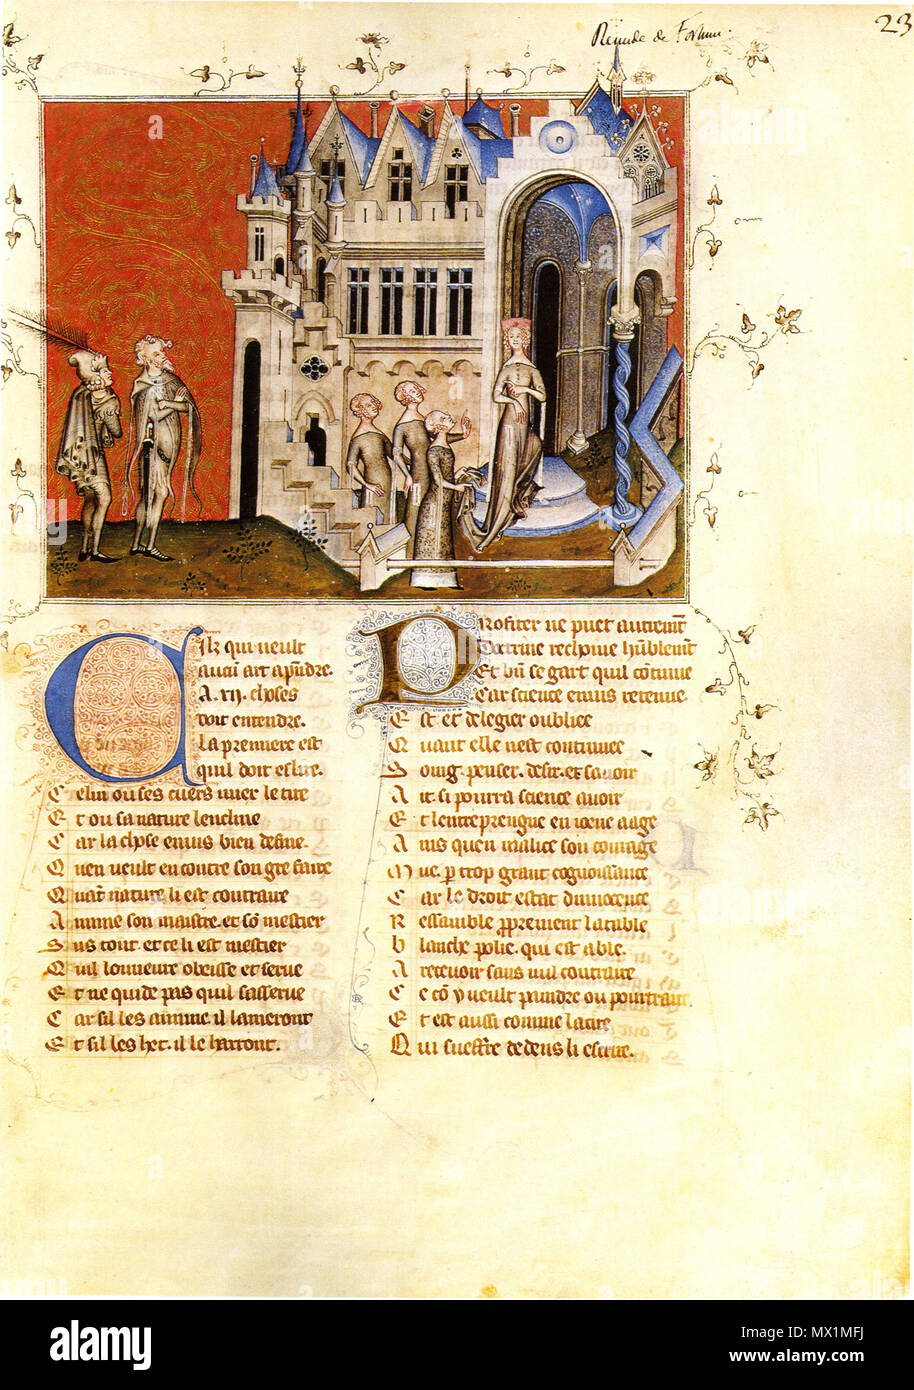 Remede de Fortun.
23
Cilz qui veult
aucun art apndre.
A .xij. choses
doit entendre.
La premiere est
quil doit eslire.
Celui ou ses cuers mier le tire
Et ou sa nature lencline
Car la chose enuis bien define.
Quen veult encontre son gre faire
Quant nature li est contraire
Aimme son maistre. et so mestier
Sus tout. et ce li est mestier
Quil lonneure obeisse et serue
Et ne cuide pas quil sasserue
Car sil les aimme. il lameront
Et sil les het. il le harront.
Profiter ne puet autremt
Doctrine recoiue humblemt
Et bn se gart quil cotinue
Car science enuis retenue
Est et de legier oubliee
Quant elle nest continuee
Soing. penser. desir. et sauoir
Ait si pourra science auoir
Et lentreprengne en ioene aage
Ains quen malice son courage
Mue. p trop grant cognoissance
Car le droit estat dinnocence
Ressamble proprement la table
Blanche polie. qui est able.
A receuoir sans nul contraire
Ce co y veult paindre ou pourtraire
Et est aussi comme la cire
Qui sueffre dedens li escrire.
alamy
Image ID: MX1MFJ
www.alamy.com